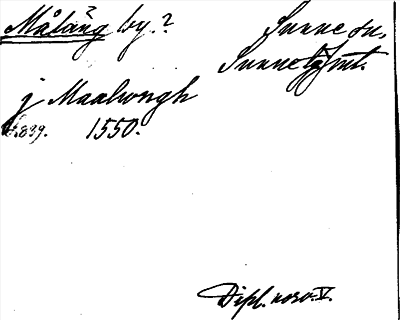 Målång by.? Sunne sn,
? Sunne tg Jmt.
j Maalwongh
s. 839. 1550.
Dipl. norv. V.